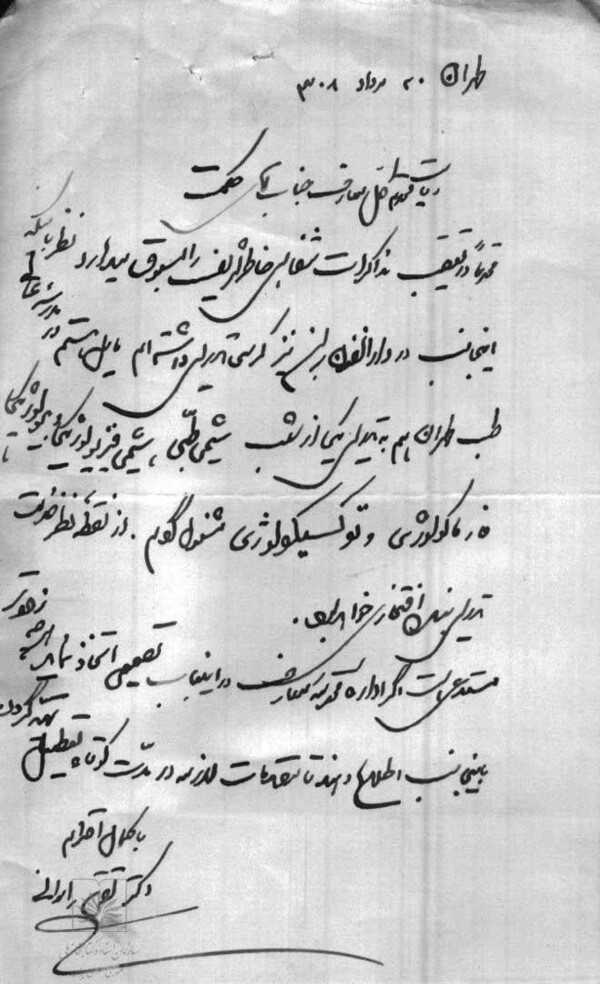 طهران ۲۰ مرداد ۳۰۸
ریاست محترم کل معارف جناب آقای حکمت
محترماً در تعقیب مذاکرات شفاهی خاطر شریف را مسبوق میدارد نظر باینکه
اینجانب در دارالفنون برلن نیز کرسی تدریس داشته‌ام مایل هستم در مدرسه عالی
طب طهران هم به تدریس یکی از شعب شیمی طبی، شیمی فیزیولوژیکی، بیولوژیکی یا
فارماکولوژی و توکسیکولوژی مشغول گردم. از نقطه نظر خدمت
تدریس بنده افتخاری خواهد بود.
مستدعی است اگر اداره محترمه معارف در اینباب تصمیمی اتخاذ نماید هرچه زودتر
باینجانب اطلاع دهند تا مقدمات لازمه در مدت کوتاه تعطیل تهیه گردد
با کمال احترام
دکتر تقی ارانی
سازمان اسناد و کتابخانه ملی